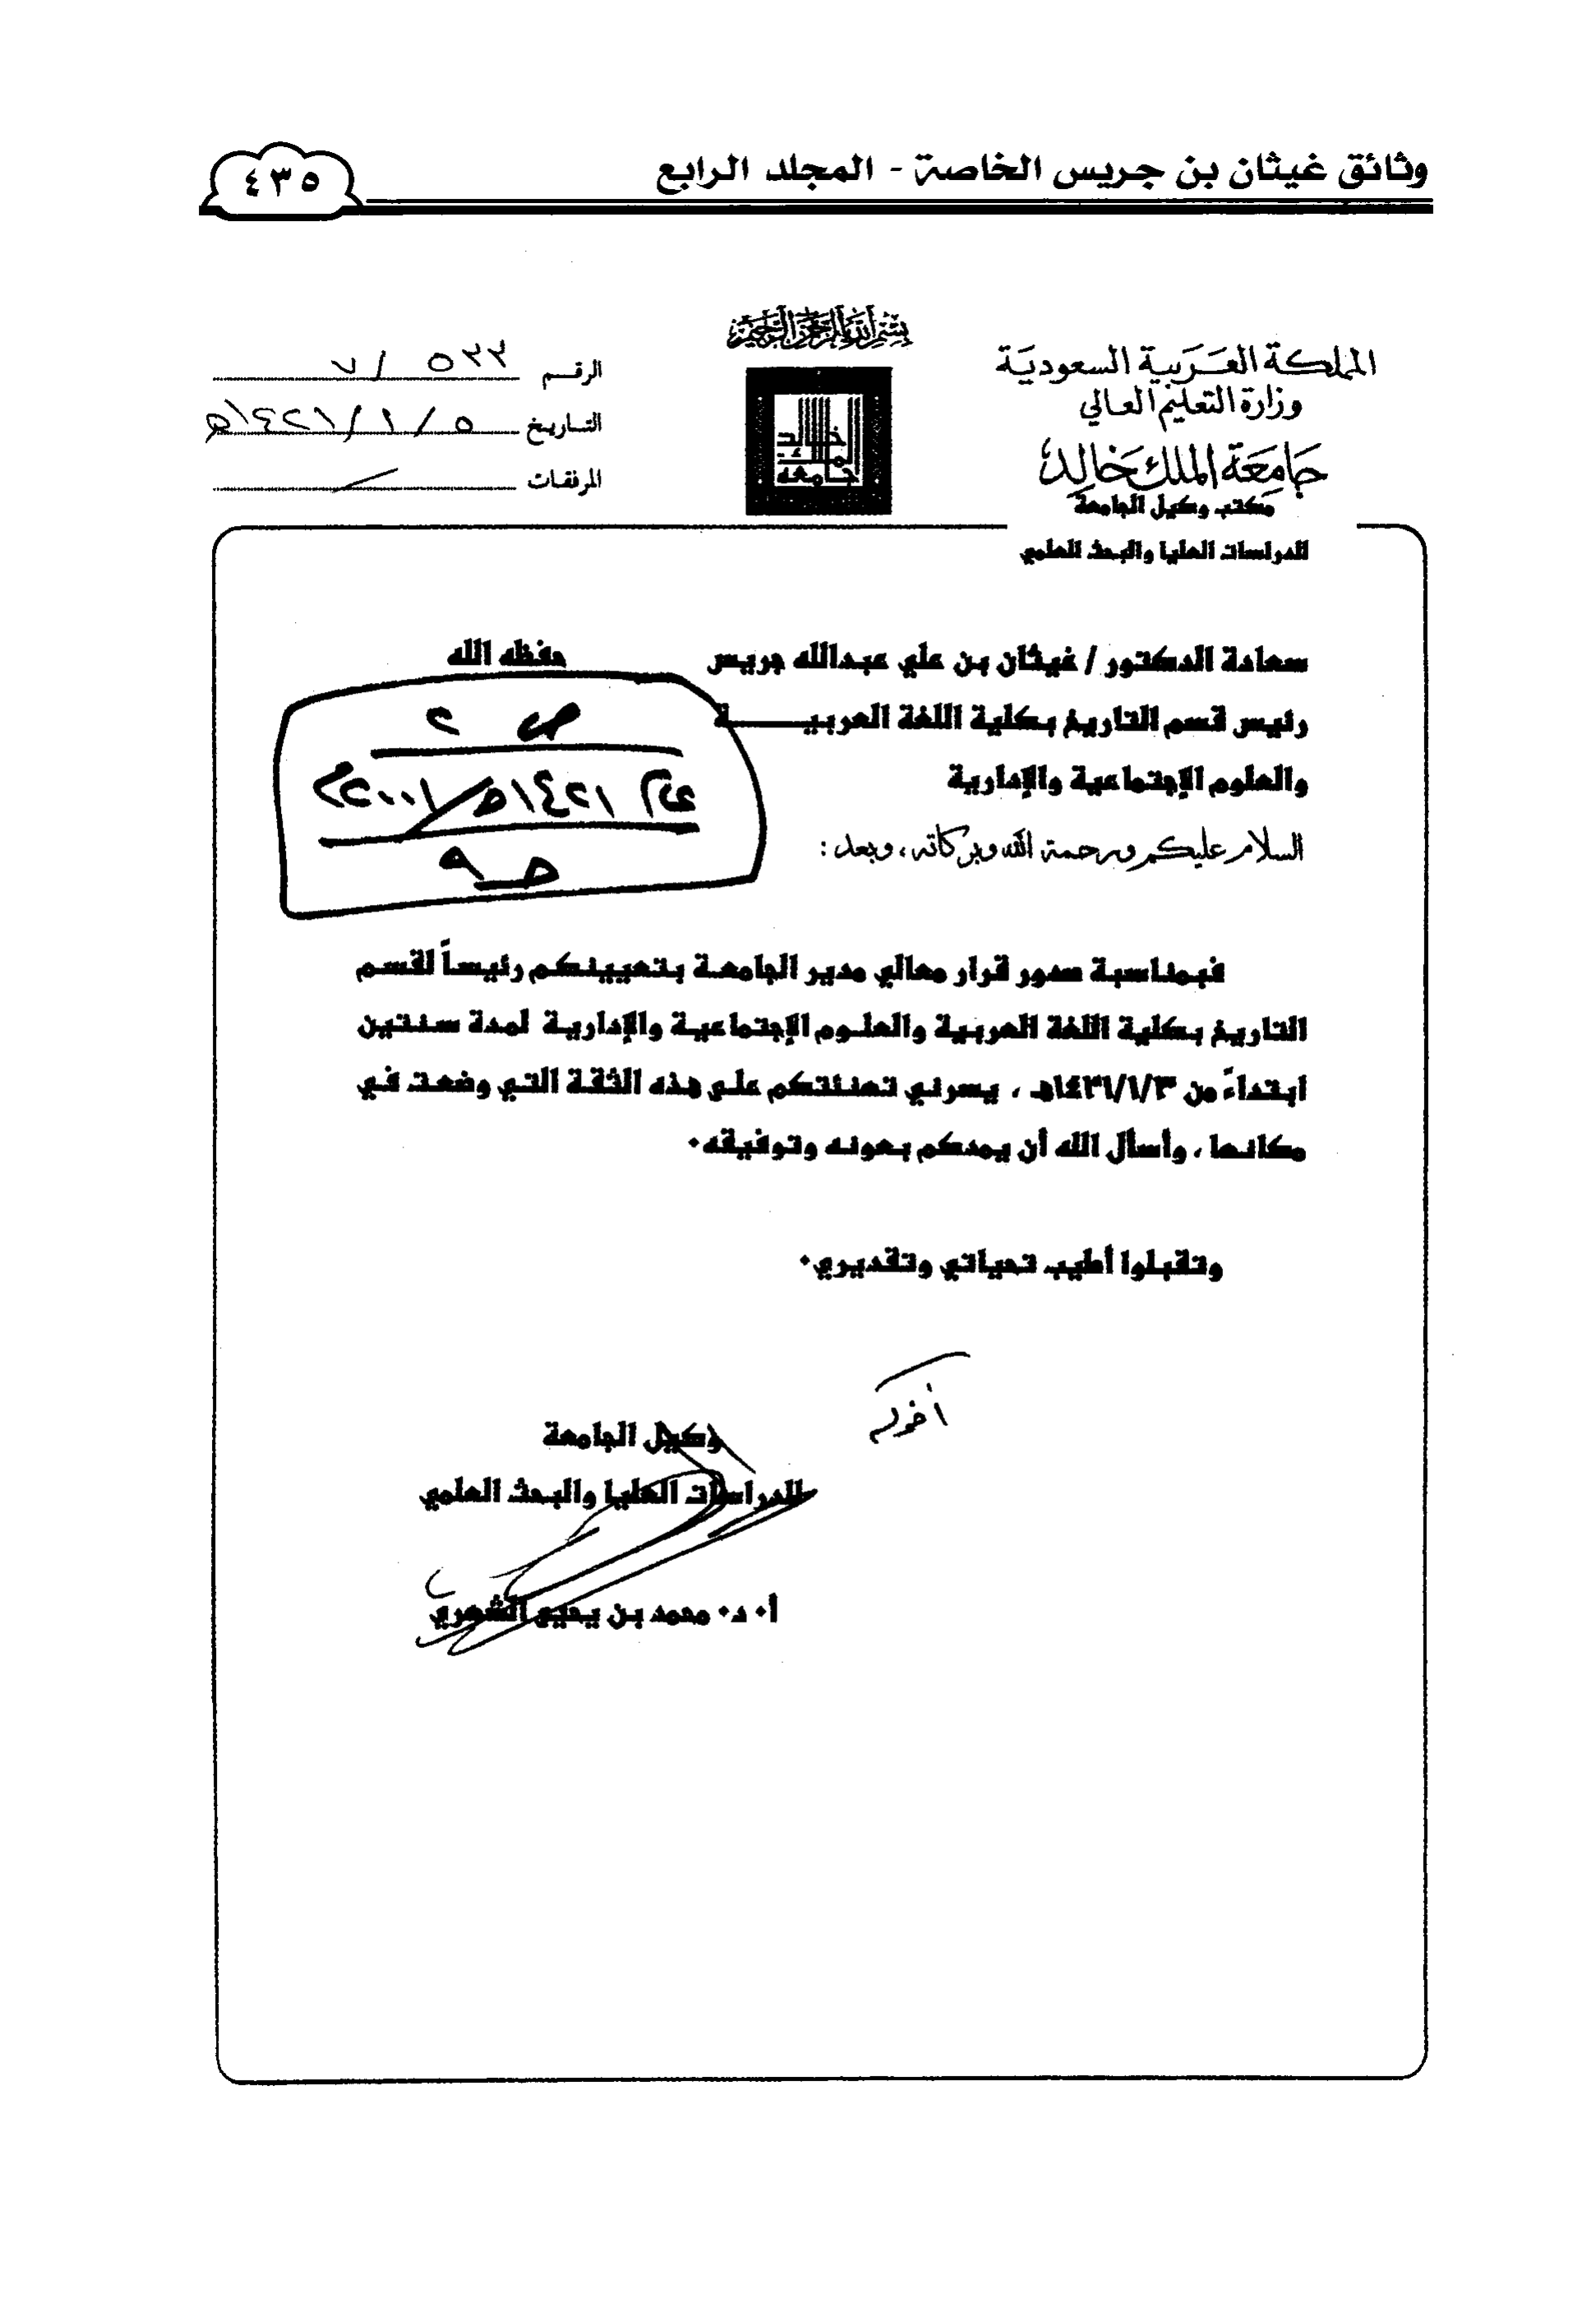 وثائق غيثان بن جريس الخاصة - المجلد الرابع
٤٣٥
بسم الله الرحمن الرحيم
المملكة العربية السعودية
وزارة التعليم العالي
جامعة الملك خالد
مكتب وكيل الجامعة
للدراسات العليا والبحث العلمي
جامعة الملك خالد
الرقم
التاريخ ٥ / ١ / ١٤٢١هـ
المرفقات
سعادة الدكتور / غيثان بن علي عبدالله جريس حفظه الله
رئيس قسم التاريخ بكلية اللغة العربيــــــة
والعلوم الإجتماعية والإدارية
ص ٢
١٤٢١هـ/٢٠٠٠م
السلام عليكم ورحمة الله وبركاته ، وبعد :
فبمناسبة صدور قرار معالي مدير الجامعة بتعيينكم رئيساً لقسم
التاريخ بكلية اللغة العربية والعلوم الإجتماعية والإدارية لمدة سنتين
ابتداءً من ١٤٢١/١/٣هـ ، يسرني تهنئتكم على هذه الثقة التي وضعت في
مكانها ، وأسأل الله أن يمدكم بعونه وتوفيقه٠
وتقبلوا أطيب تحياتي وتقديري٠
أخوكم
وكيل الجامعة
للدراسات العليا والبحث العلمي
أ٠ د٠ محمد بن يحيى الشهري